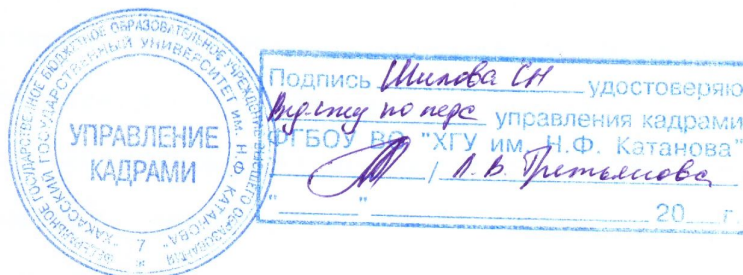 ФЕДЕРАЛЬНОЕ ГОСУДАРСТВЕННОЕ БЮДЖЕТНОЕ ОБРАЗОВАТЕЛЬНОЕ УЧРЕЖДЕНИЕ ВЫСШЕГО ОБРАЗОВАНИЯ
"ХАКАССКИЙ ГОСУДАРСТВЕННЫЙ УНИВЕРСИТЕТ ИМ. Н.Ф. КАТАНОВА"
УПРАВЛЕНИЕ
КАДРАМИ
7
Подпись Шилова СН удостоверяю
по перс управления кадрами
ФГБОУ ВО "ХГУ им. Н.Ф. Катанова"
/ Л.В. Третьякова
"____" ____ 20__г.